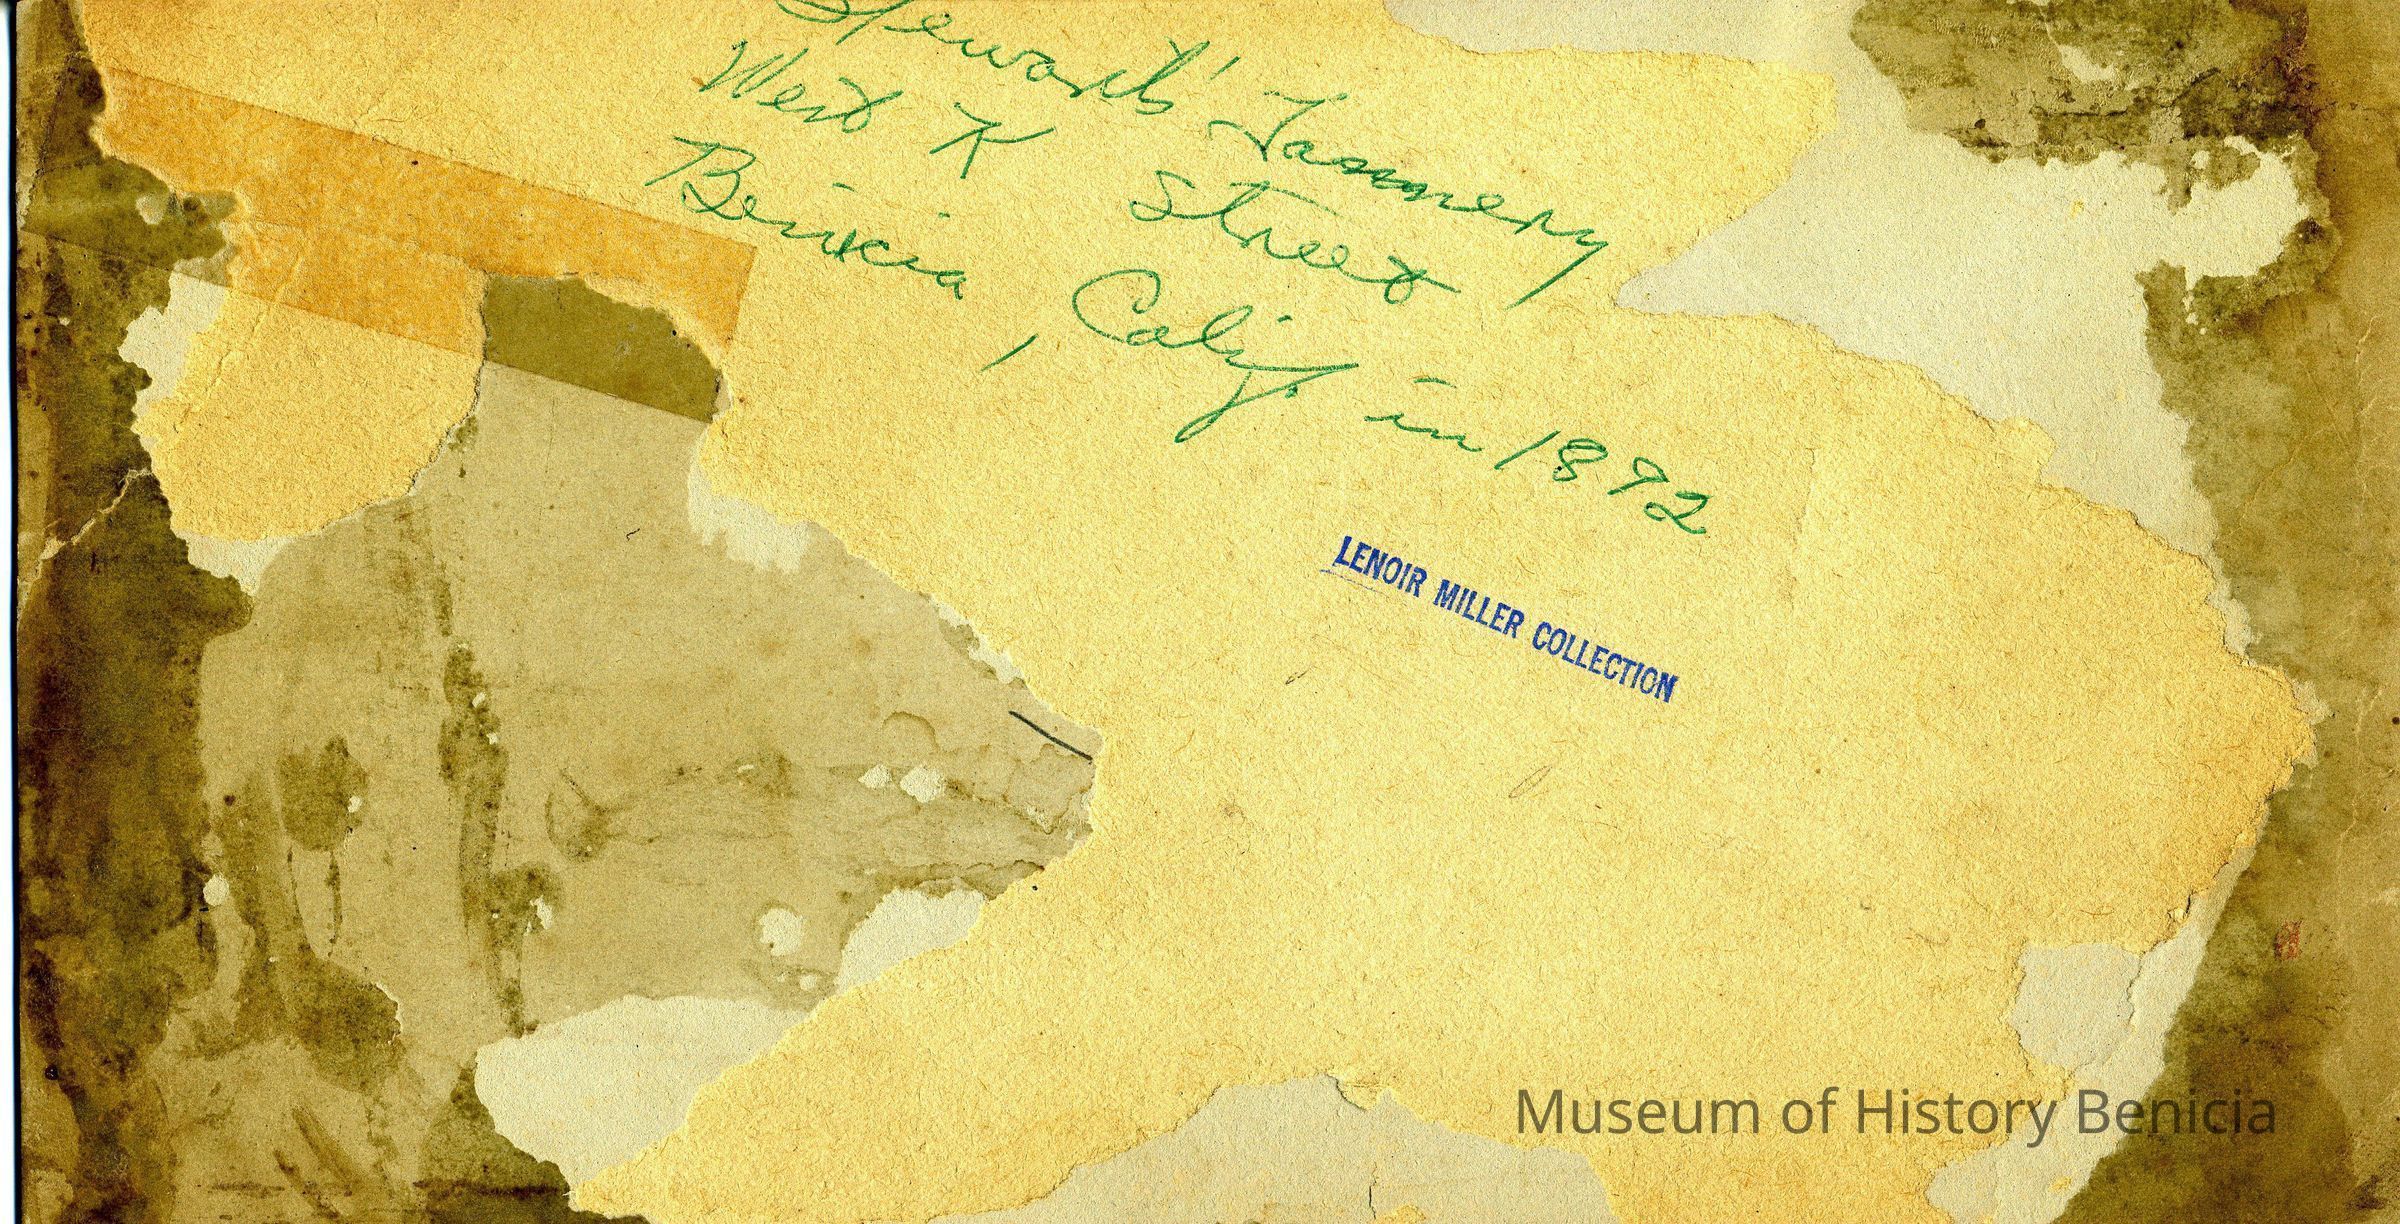 Tannery
West K Street
Benicia, Calif. in 1892
LENOIR MILLER COLLECTION
Museum of History Benicia